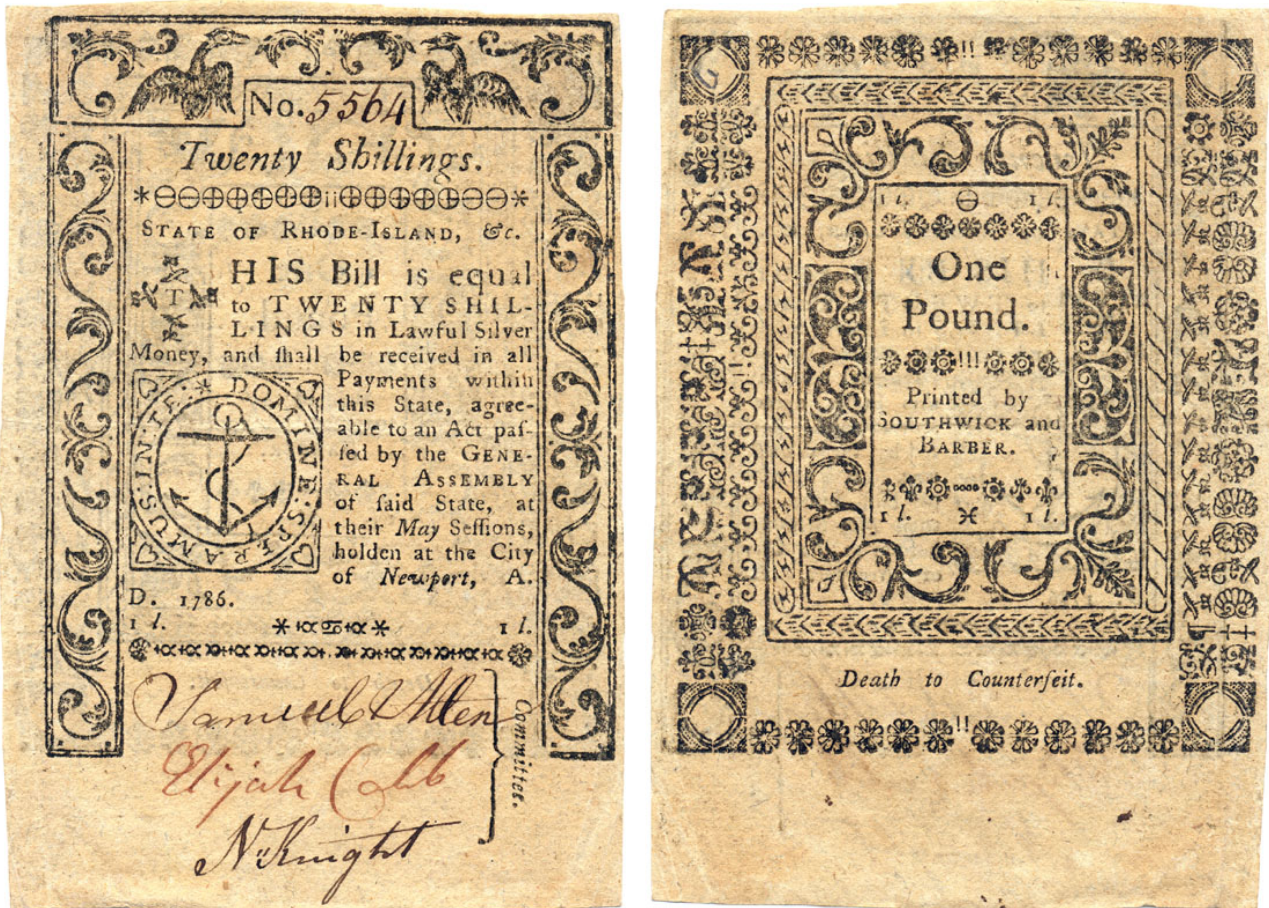 No. 5564
Twenty Shillings.
STATE OF RHODE-ISLAND, &c.
THIS Bill is equal
to TWENTY SHIL-
LINGS in Lawful Silver
Money, and ſhall be received in all
Payments within
this State, agree-
able to an Act paſ-
ſed by the GENE-
RAL ASSEMBLY
of ſaid State, at
their May Seſſions,
holden at the City
of Newport, A.
D. 1786.
IN:TE:* DOMINE:SPERAMUS:
1 l. 1 l.
Samuel Allen
Elijah Cobb
N Knight
Committee.
1 l. 1 l.
One
Pound.
Printed by
SOUTHWICK and
BARBER.
1 l. 1 l.
Death to Counterfeit.